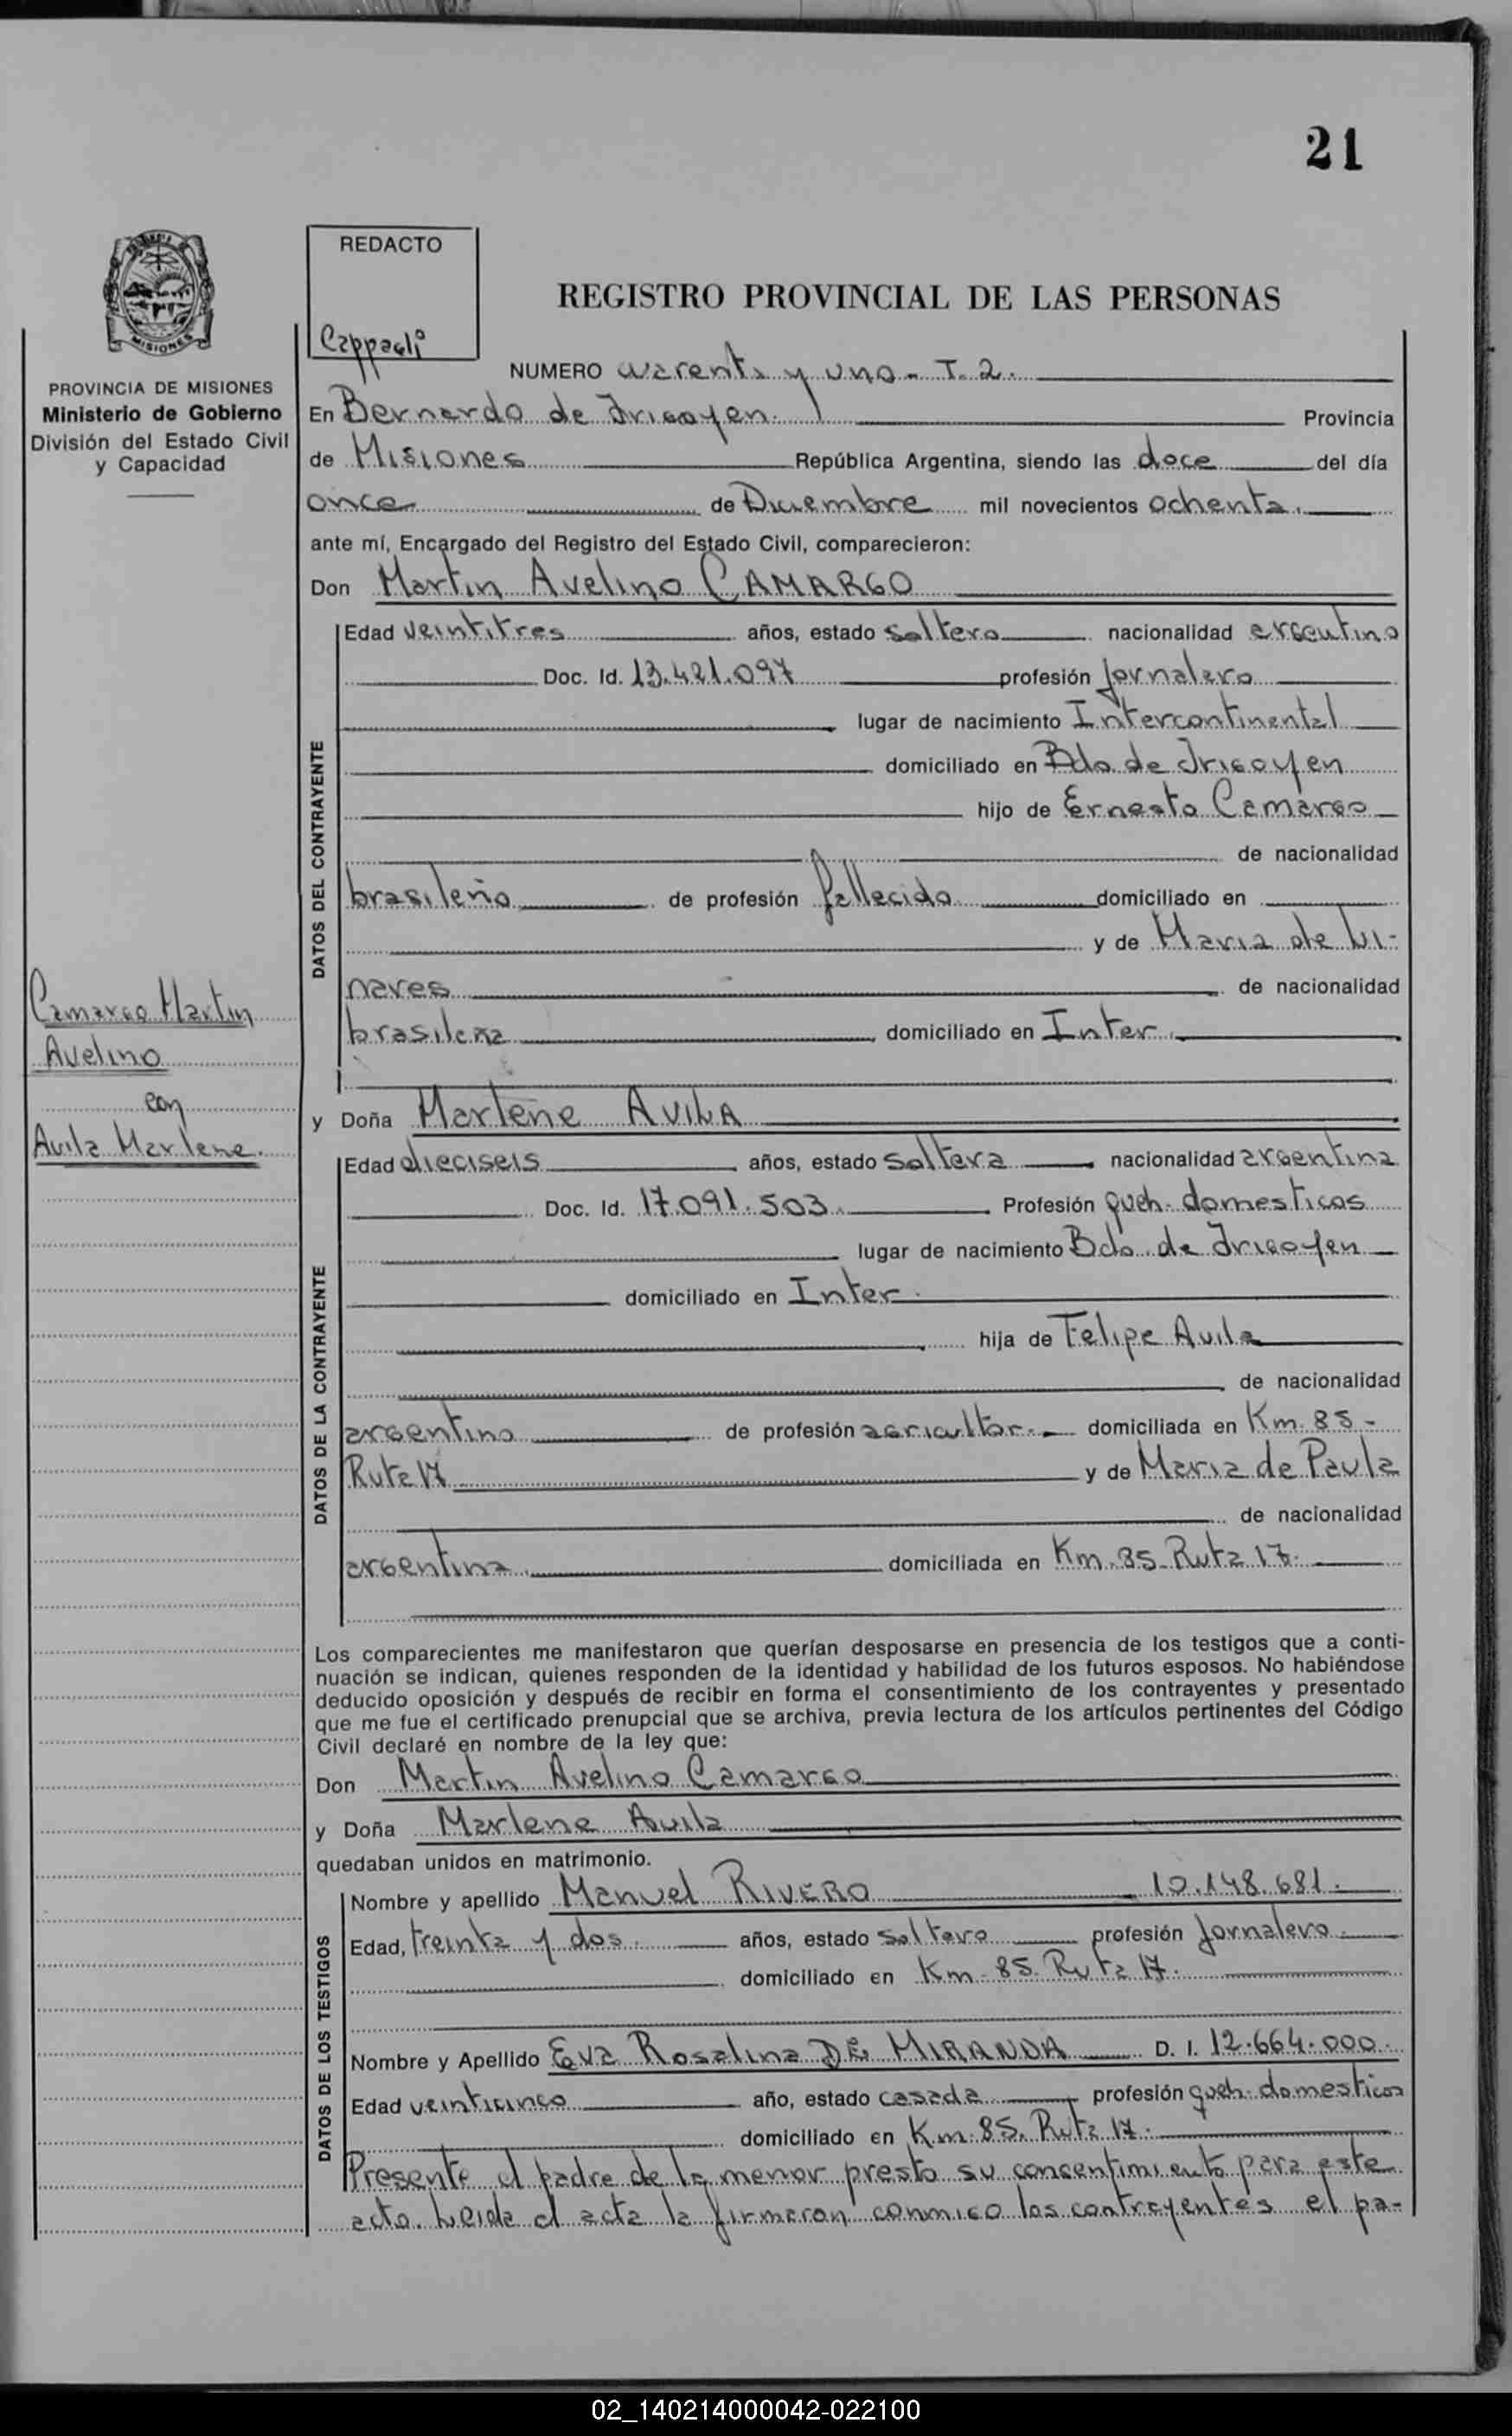 21
REDACTO
Cappagli
REGISTRO PROVINCIAL DE LAS PERSONAS
MISIONES
PROVINCIA DE MISIONES
Ministerio de Gobierno
División del Estado Civil
y Capacidad
NUMERO cuarenta y uno - T. 2.
En Bernardo de Irigoyen. Provincia
de Misiones República Argentina, siendo las doce del día
once de Diciembre mil novecientos ochenta.
ante mí, Encargado del Registro del Estado Civil, comparecieron:
Don Martin Avelino CAMARGO
DATOS DEL CONTRAYENTE
Edad veintitres años, estado soltero nacionalidad argentino
Doc. Id. 13.421.097 profesión jornalero
lugar de nacimiento Intercontinental
domiciliado en Bdo. de Irigoyen
hijo de Ernesto Camargo
de nacionalidad
brasileño de profesión fallecido domiciliado en
y de Maria de Li-
nares de nacionalidad
brasileña domiciliado en Inter.
Camargo Martin
Avelino
con
Avila Marlene.
y Doña Marlene AVILA
DATOS DE LA CONTRAYENTE
Edad dieciseis años, estado soltera nacionalidad argentina
Doc. Id. 17.091.503. Profesión queh. domesticos
lugar de nacimiento Bdo. de Irigoyen
domiciliado en Inter.
hija de Felipe Avila
de nacionalidad
argentino de profesión agricultor. domiciliada en Km. 85 -
Ruta 17 y de Maria de Paula
de nacionalidad
argentina. domiciliada en Km. 85. Ruta 17.
Los comparecientes me manifestaron que querían desposarse en presencia de los testigos que a conti-
nuación se indican, quienes responden de la identidad y habilidad de los futuros esposos. No habiéndose
deducido oposición y después de recibir en forma el consentimiento de los contrayentes y presentado
que me fue el certificado prenupcial que se archiva, previa lectura de los artículos pertinentes del Código
Civil declaré en nombre de la ley que:
Don Martin Avelino Camargo
y Doña Marlene Avila
quedaban unidos en matrimonio.
DATOS DE LOS TESTIGOS
Nombre y apellido Manuel RIVERO 10.148.681.
Edad, treinta y dos. años, estado soltero profesión jornalero.
domiciliado en Km. 85. Ruta 17.
Nombre y Apellido Eva Rosalina DE MIRANDA D. I. 12.664.000.
Edad veinticinco año, estado casada profesión queh. domesticos
domiciliado en Km. 85. Ruta 17.
Presente el padre de la menor presto su consentimiento para este
acto. Leida el acta la firmaron conmigo los contrayentes el pa-
02_140214000042-022100